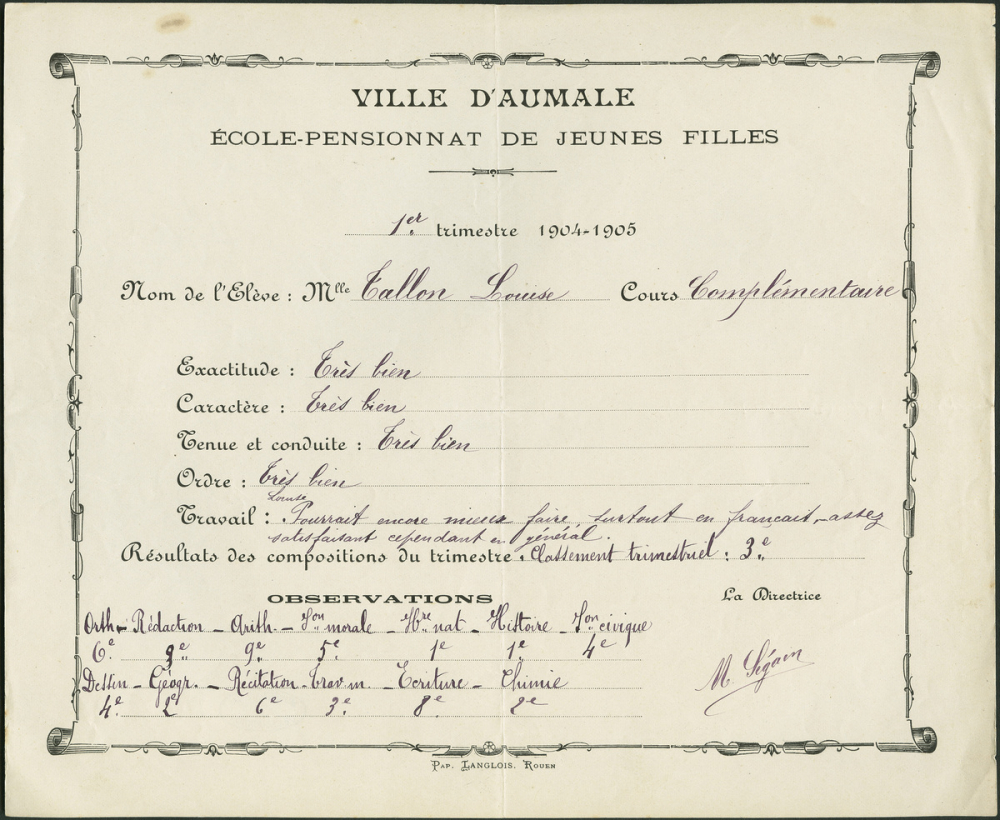 VILLE D'AUMALE
ÉCOLE-PENSIONNAT DE JEUNES FILLES
1er trimestre 1904-1905
Nom de l'Elève : Mlle Tallon Louise Cours Complémentaire
Exactitude : Très bien
Caractère : Très bien
Tenue et conduite : Très bien
Ordre : Très bien
Louise
Travail : Pourrait encore mieux faire, surtout en francais, assez
satisfaisant cependant en général.
Résultats des compositions du trimestre. Classement trimestriel : 3e
OBSERVATIONS La Directrice
Orth - Rédaction - Arith. - Ion morale - Hre nat - Histoire - Ion civique
6e 9e 9e 5e 1e 1e 4e
M Ségain
Dessin - Géogr. - Récitation - Trav. m. - Ecriture - Chimie
4e 2e 6e 3e 8e 2e
PAP. LANGLOIS. ROUEN